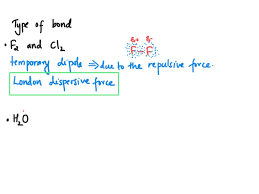 Type of bond
• F2 and Cl2
δ+ δ-
F-F
temporary dipole ⇒ due to the repulsive force.
London dispersive force
• H2O